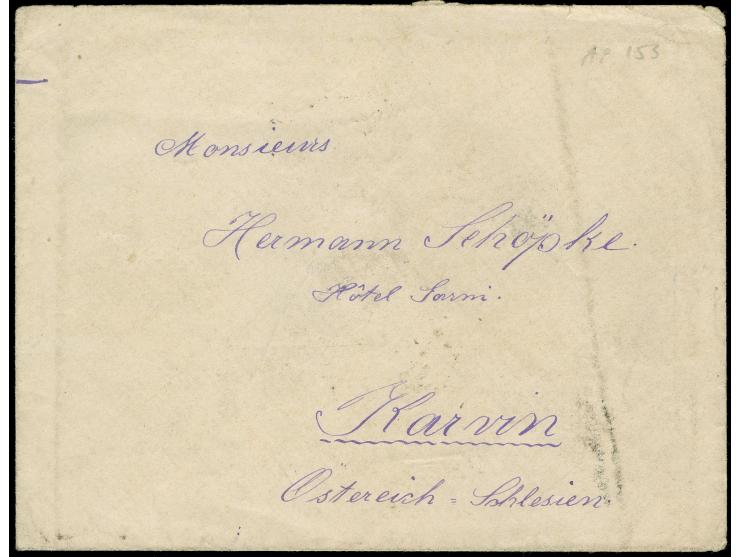 AP 153
Monsieurs
Hermann Schöpke.
Hôtel Garni.
Karvin
Östereich = Schlesien.